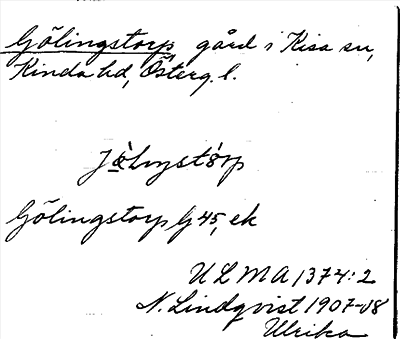 Gölingstorp gård i Kisa sn,
Kinda hd, Österg. l.
Gölingstorp Gj 45, ek
ULMA 1374:2
N. Lindqvist 1907-08
Ulrika